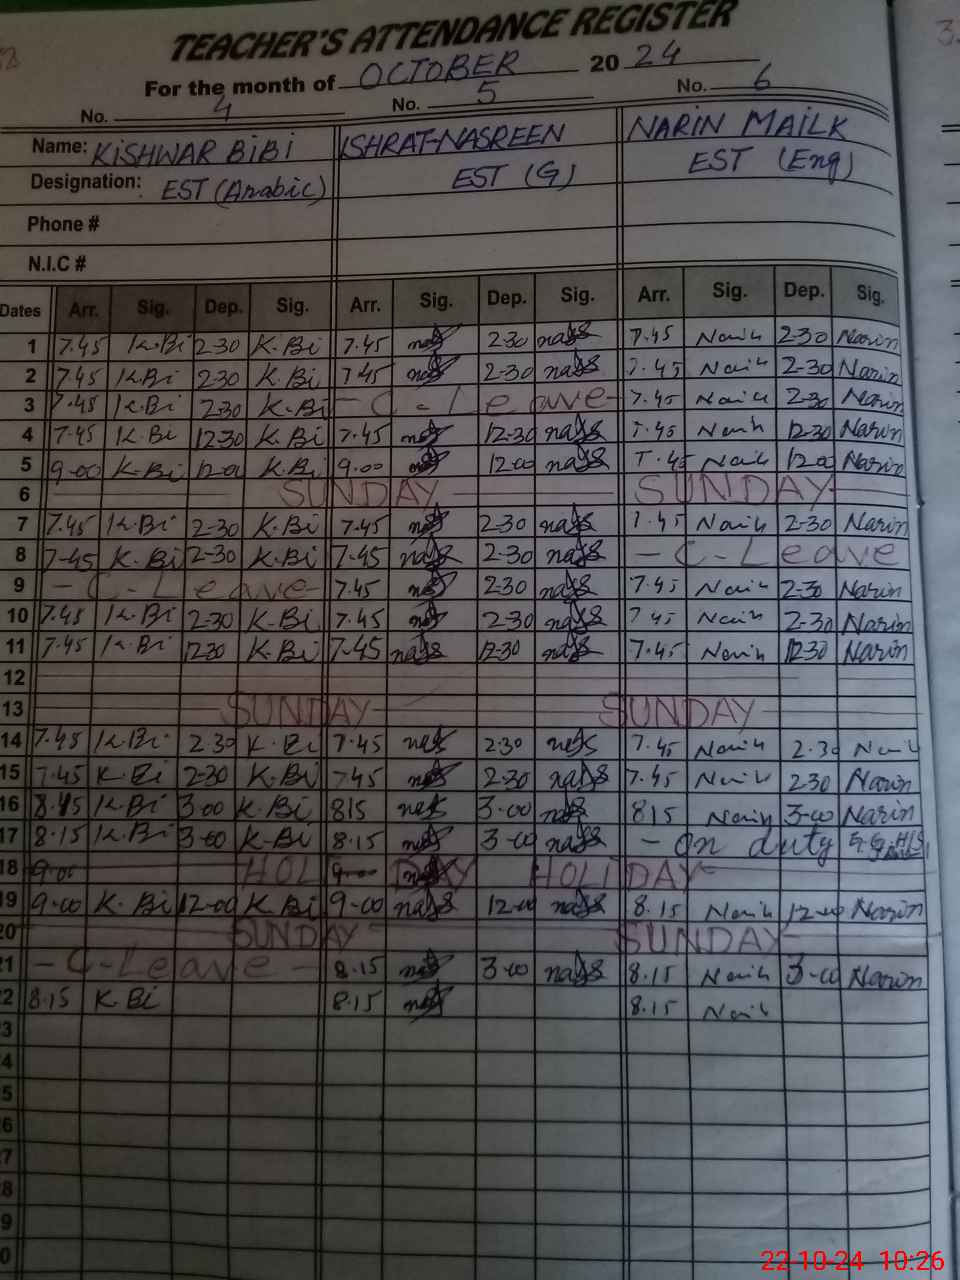 TEACHER'S ATTENDANCE REGISTER
For the month of OCTOBER 20 24
No. 4 No. 5 No. 6
Name: KISHWAR BIBI ISHRAT-NASREEN NARIN MAILK
Designation: EST (Arabic) EST (G) EST (Eng)
Phone #
N.I.C #
Dates Arr. Sig. Dep. Sig. Arr. Sig. Dep. Sig. Arr. Sig. Dep. Sig.
1 7.45 K.Bi 2-30 K.Bi 7.45 2-30 7.45 Narin 2-30 Narin
2 7.45 K.Bi 2-30 K.Bi 7.45 2-30 7.45 Narin 2-30 Narin
3 7.45 K.Bi 2-30 K.Bi - C - Leave - 7.45 Narin 2-30 Narin
4 7.45 K.Bi 12-30 K.Bi 7.45 12-30 7.45 Narin 12-30 Narin
5 9.00 K.Bi 12-00 K.Bi 9.00 12-00 7.45 Narin 12-00 Narin
6 SUNDAY SUNDAY
7 7.45 K.Bi 2-30 K.Bi 7.45 2-30 7.45 Narin 2-30 Narin
8 7-45 K.Bi 2-30 K.Bi 7-45 2-30 - C - Leave
9 - C - Leave - 7.45 2-30 7.45 Narin 2-30 Narin
10 7.45 K.Bi 2-30 K.Bi 7.45 2-30 7.45 Narin 2-30 Narin
11 7.45 K.Bi 12-30 K.Bi 7-45 12-30 7.45 Narin 12-30 Narin
12
13 SUNDAY SUNDAY
14 7.45 K.Bi 2-30 K.Bi 7.45 2-30 7.45 Narin 2-30
15 7.45 K.Bi 2-30 K.Bi 7.45 2-30 7.45 Narin 2-30 Narin
16 8.15 K.Bi 3-00 K.Bi 815 3-00 815 Narin 3-00 Narin
17 8.15 K.Bi 3-00 K.Bi 8.15 3-00 - On duty
18 9.00 HOLIDAY 9.00 HOLIDAY
19 9-00 K.Bi 12-00 K.Bi 9-00 12-00 8.15 Narin 12-00 Narin
20 SUNDAY SUNDAY
21 - C - Leave - 8.15 3-00 8.15 Narin 3-00 Narin
2 8.15 K.Bi 8.15 8.15 Narin
3
4
5
6
7
8
9
0
22-10-24 10:26